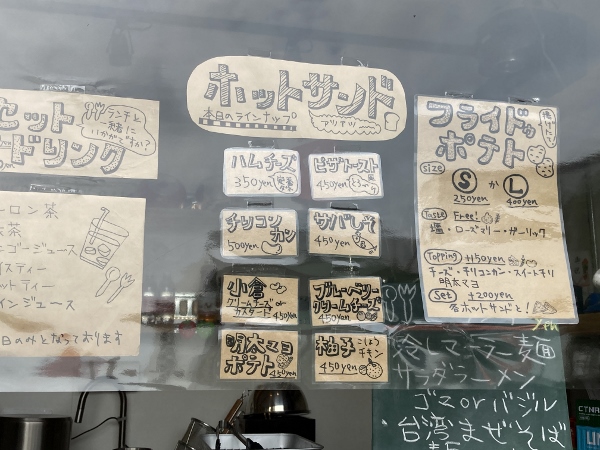 セット
ドリンク
ランチと
一緒に
いかがですか?
ーロン茶
茶
ゴージュース
スティー
ットティー
インジュース
日のみとなっております
ホットサンド
本日のラインナップ
アリマス
ハムチーズ
350yen
ピザトースト
450yen
チリコン
カン
500yen
サバしそ
450yen
小倉
クリームチーズ or
カスタード 450yen
ブルーベリー
クリームチーズ
450yen
明太マヨ
ポテト
450yen
柚子
こしょう
チキン
450yen
フライドポテト
size
S か L
250yen 400yen
Taste Free!
塩・ローズマリー・ガーリック
Topping +150yen
チーズ・チリコンカン・スイートチリ
明太マヨ
Set +200yen
各ホットサンドと!
yen
冷しマーラー麺
サラダラーメン
ゴマ or バジル
・台湾まぜそば